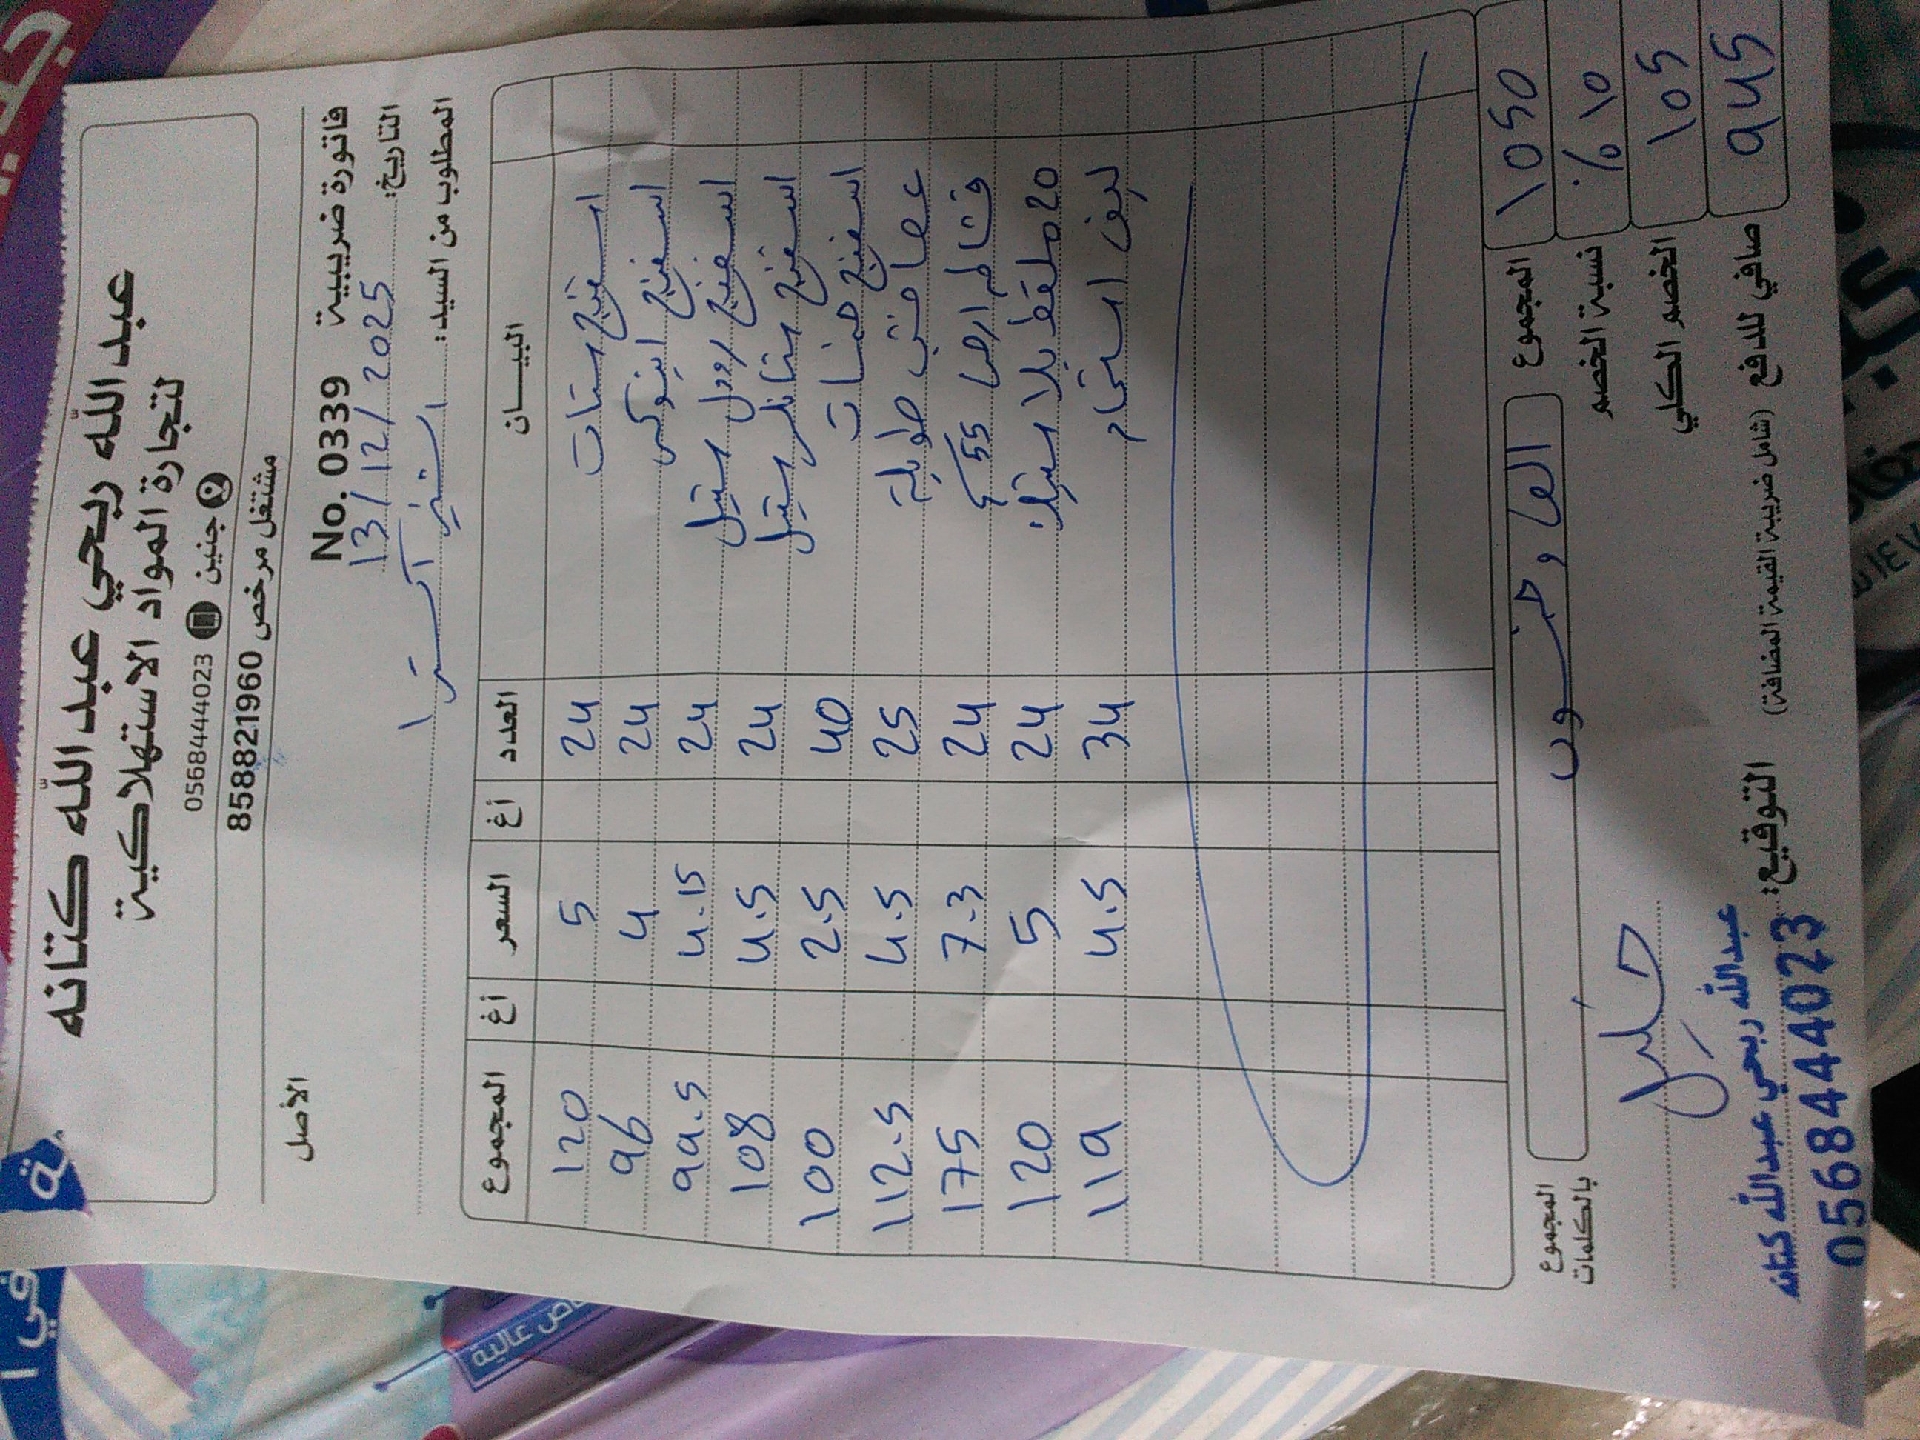 عبد الله ربحي عبد الله كتانه
لتجارة المواد الاستهلاكية
جنين 0568444023
مشتغل مرخص 858821960
الأصل
No. 0339 فاتورة ضريبية
التاريخ: 13/12/2025
المطلوب من السيد: استرا
البيـــان العدد أغ السعر أغ المجموع
اسفنج ستات 24 5 120
اسفنج 24 4 96
اسفنج رول ستيل 24 4.15 99.5
اسفنج ستانلس ستيل 24 4.5 108
اسفنج 40 2.5 100
عصا خشب طويلة 25 4.5 112.5
ارض 55 24 7.3 175
20 ملقط بلاستيك 24 5 120
ليف استحمام 34 4.5 119
المجموع 1050
المجموع بالكلمات الف و خمسون
نسبة الخصم 10%
الخصم الكلي 105
صافي للدفع 945
(شامل ضريبة القيمة المضافة)
التوقيع:
عبدالله ربحي عبدالله كتانه
0568444023